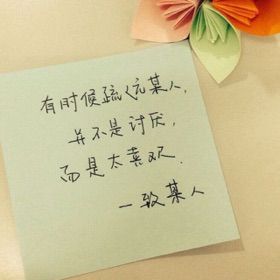 有时候疏远某人，
并不是讨厌，
而是太喜欢.
一致某人